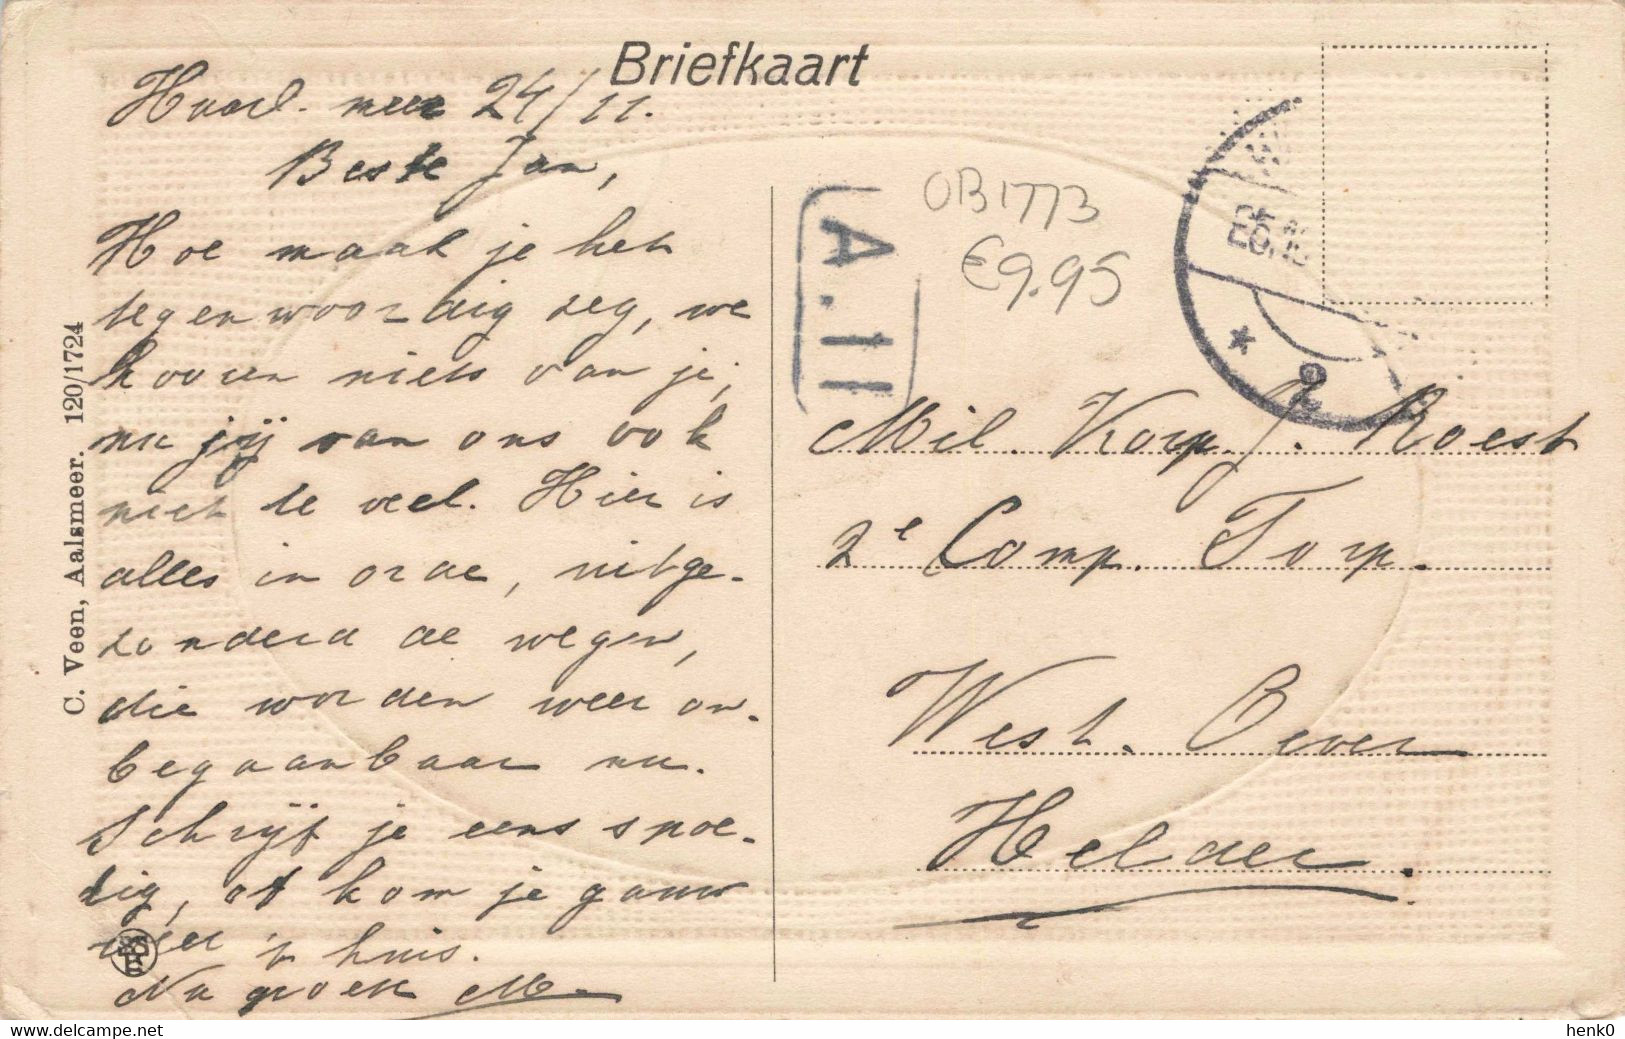 Briefkaart
Haarl. meer 24/11.
Beste Jan,
Hoe maak je het
tegenwoordig zeg, we
hooren niets van je,
nu jij van ons ook
niet te veel. Hier is
alles in orde, uitge-
zonderd de wegen,
die worden weer on-
begaanbaar nu.
Schrijf je eens spoe-
dig, of kom je gauw
weer 't huis.
Na groete M.
C. Veen, Aalsmeer. 120/1724
OB1773
€9.95
A.11
2
Mil. Korp J. Roest
2e Comp. Torp.
West. Oever
Helder.
henk0